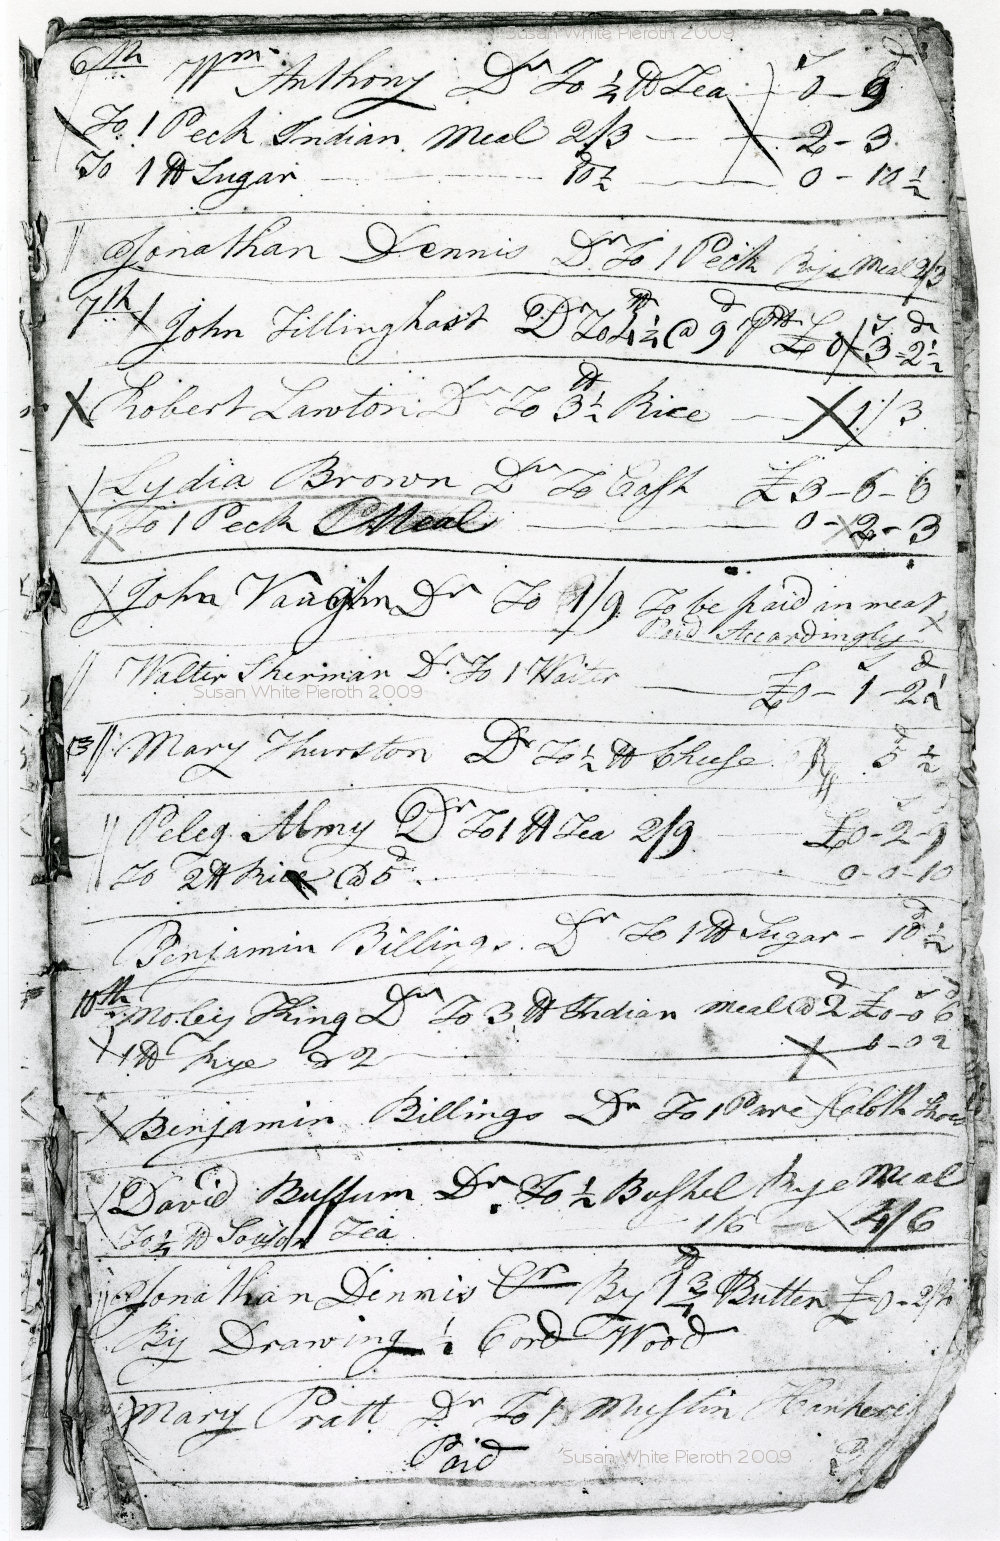 Susan White Pieroth 2009
6th Wm Anthony Dr To 1/2 lb Tea 0 - 9
To 1 Peck Indian Meal 2/3 — 2 - 3
To 1 lb Sugar 10 1/2 — 0 - 10 1/2
Jonathan Dennis Dr To 1 Peck Rye Meal 2/3
7th John Tillinghast Dr To 4 1/4 lb @ 9d £0 - 3 - 2 1/2
Robert Lawton Dr To 3 1/2 lb Rice — 1/3
Lydia Brown Dr To Cash £3 - 6 - 6
To 1 Peck Meal — 0 - 2 - 3
John Vaughn Dr To 1/9 To be paid in meat
Paid Accordingly
Walter Sherman Dr To 1 Waiter — £0 - 1 - 2
Susan White Pieroth 2009
13 Mary Thurston Dr To 1/2 lb Cheese 3 1/2
Peleg Almy Dr To 1 lb Tea 2/9 £0 - 2 - 9
To 2 lb Rice @ 5d 0 - 0 - 10
Benjamin Billings Dr To 1 lb Sugar - 10 1/2
10th King Dr To 3 lb Indian Meal @ 2d £0 - 0 6
1 lb Rye @ 2 — 0 - 0 2
Benjamin Billings Dr To 1 Pare Cloth Shoes
David Buffum Dr To 1/2 Bushel Rye Meal
4/6
To 1/4 lb Tea 1/6
Jonathan Dennis Cr By 1 3/4 lb Butter £0 - 2/
By Drawing 1/2 Cord Wood
Mary Pratt Dr To 1 Muslin
Paid
Susan White Pieroth 2009